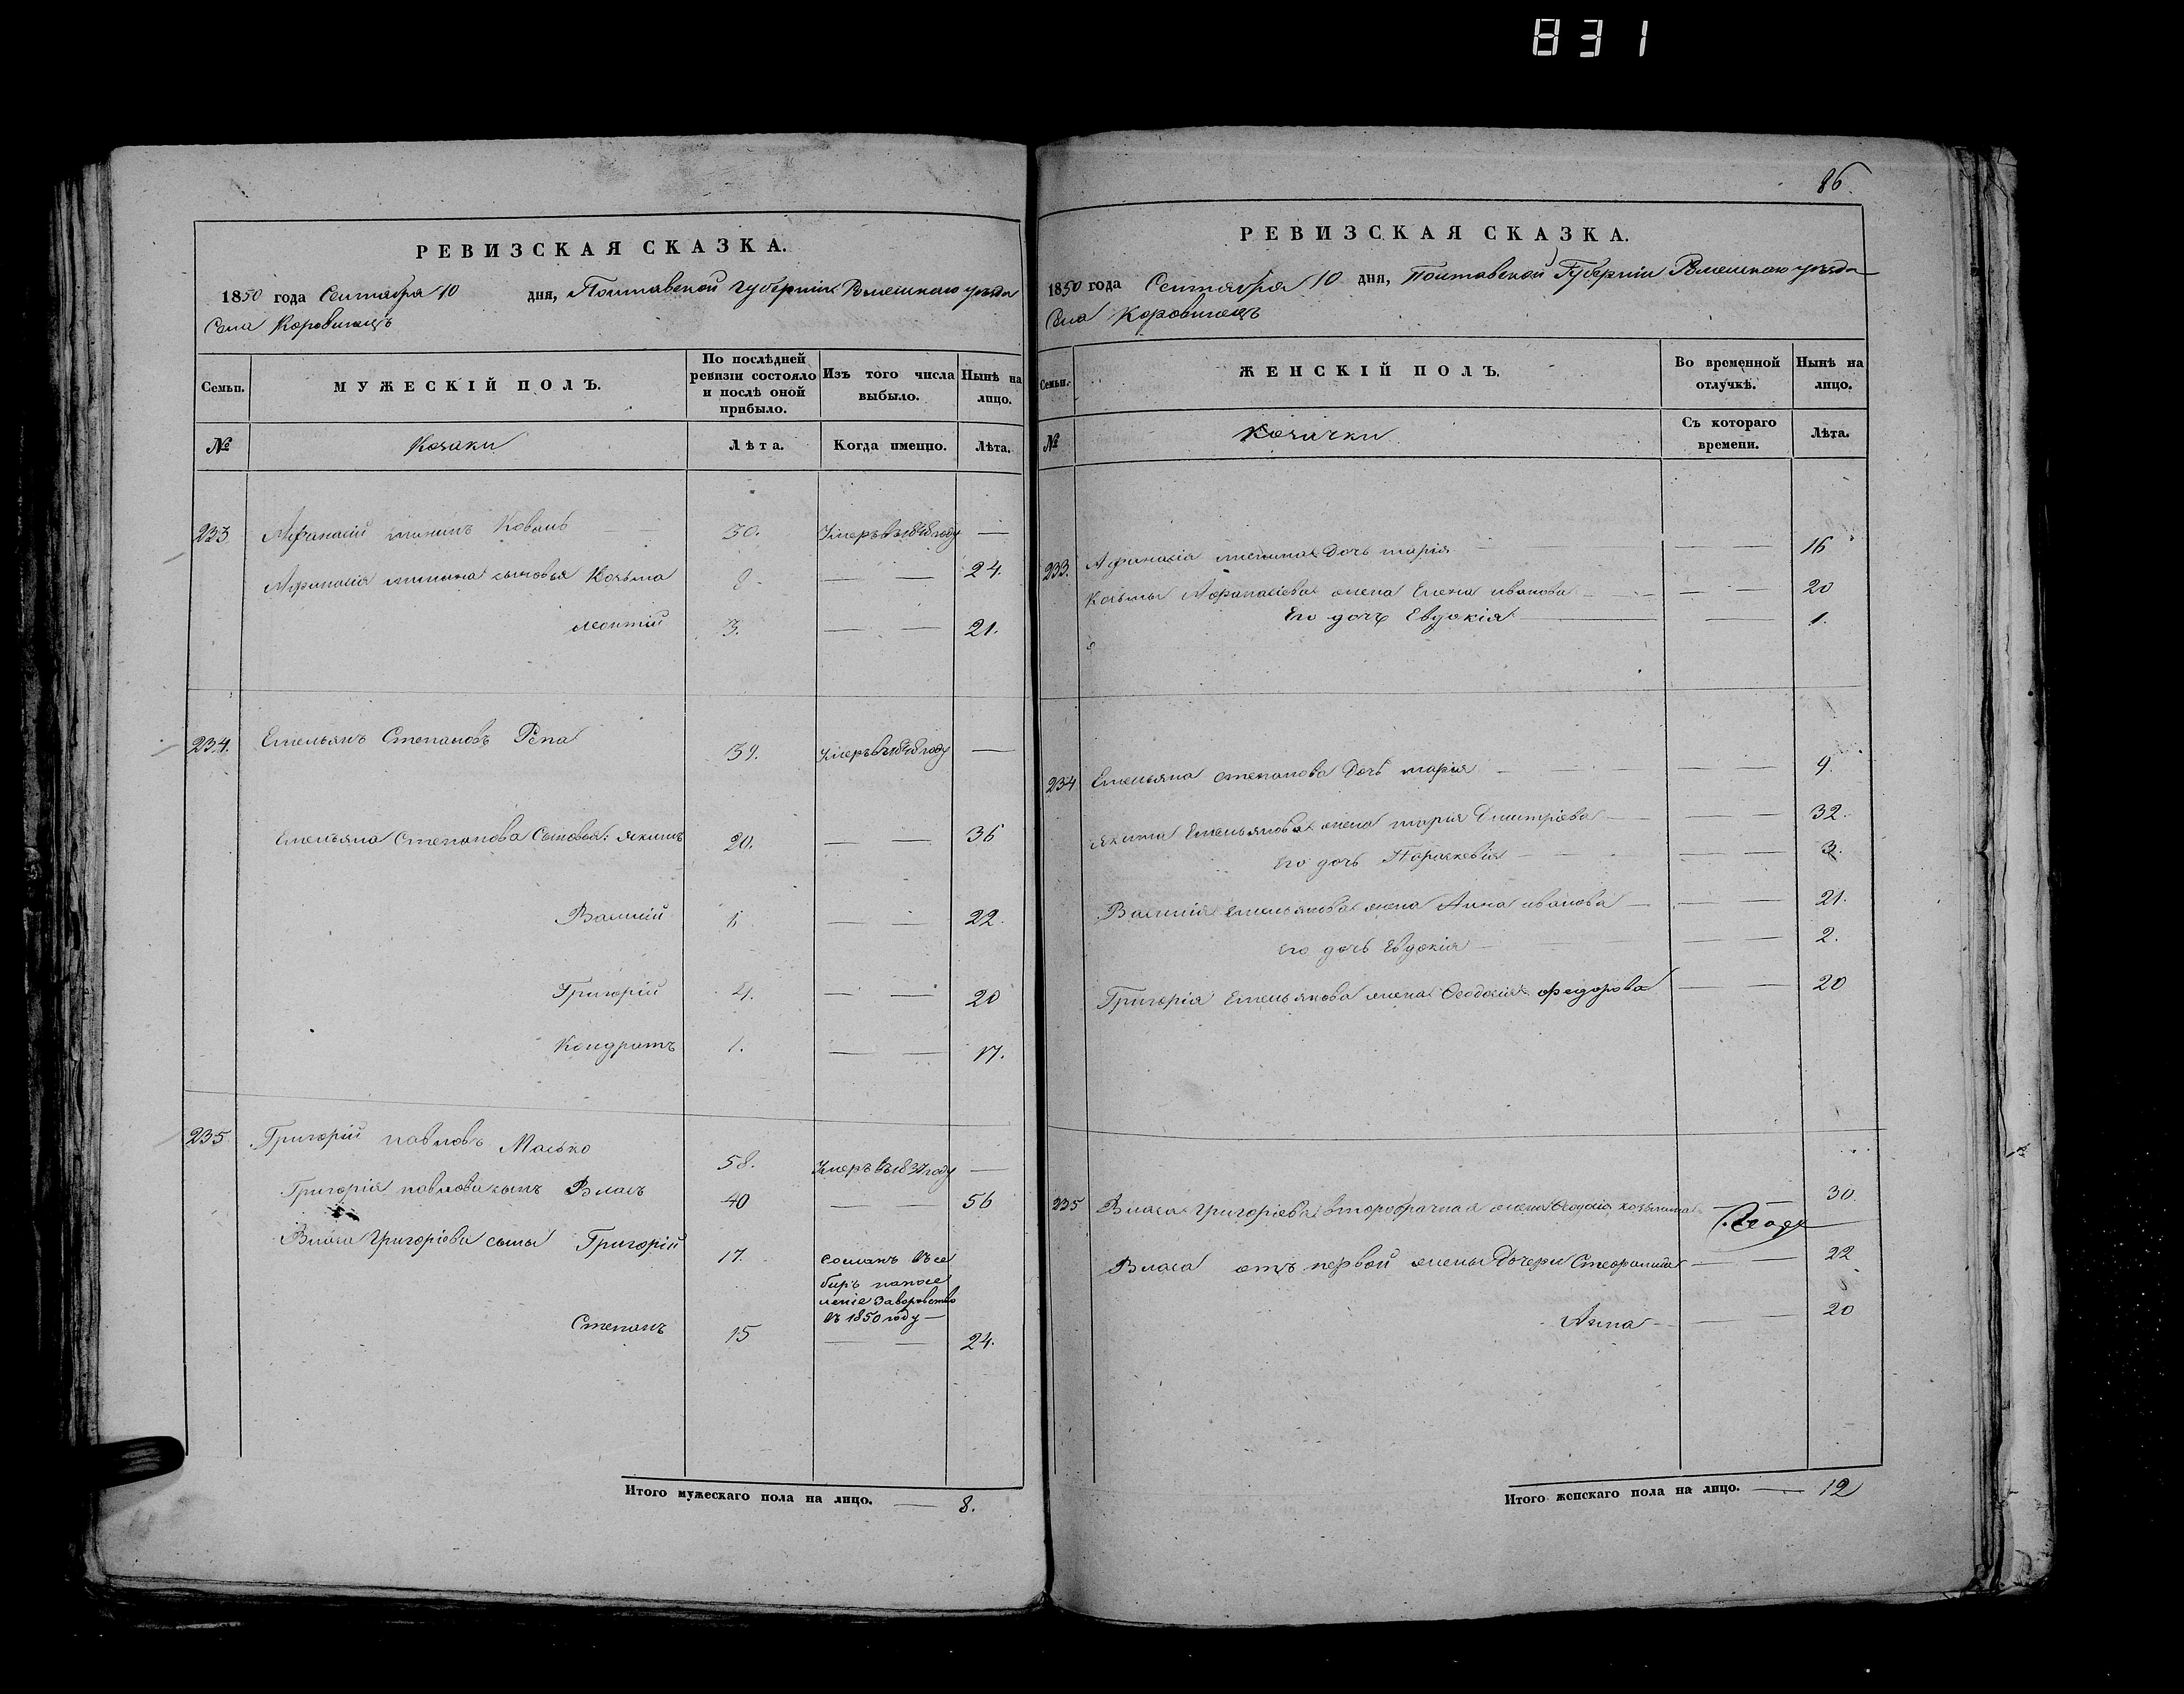 831
РЕВИЗСКАЯ СКАЗКА.
1850 года Сентября 10 дня, Полтавской Губерніи Роменскаго уѣзда
Села Коровинецъ
Семьи. МУЖЕСКІЙ ПОЛЪ. По послѣдней ревизіи состояло и послѣ оной прибыло. Изъ того числа выбыло. Нынѣ на лицо.
№ Козаки Лѣта. Когда именно. Лѣта.
233 Афанасій Мининъ Коваль 30. Умеръ въ году —
Афанасія Минина сыновья Козьма 8. — — 24.
Леонтій 3. — — 21.
234. Емельянъ Степановъ Репа 39. Умеръ въ году —
Емельяна Степанова Сыновья: Якимъ 20. — — 36
Василій — — 22.
Григорій 4. — — 20
Кондратъ 1. — — 17.
235 Григорій Павловъ Масько 58. Умеръ въ 1837 году —
Григорія Павлова сынъ Власъ 40 — — 56
Власа Григоріева сыны Григорій 17. сосланъ въ се
биръ на посе
леніе за воровство
въ 1850 году —
Степанъ 15 — — 24.
Итого мужескаго пола на лицо. — 8.
86.
РЕВИЗСКАЯ СКАЗКА.
1850 года Сентября 10 дня, Полтавской Губерніи Роменскаго уѣзда
Села Коровинецъ
Семьи. ЖЕНСКІЙ ПОЛЪ. Во временной отлучкѣ. Нынѣ на лицо.
№ Козачки Съ котораго времени. Лѣта.
233. Афанасія Минина Дочь Марія — — 16
Козьмы Афанасіева жена Елена Иванова — — 20
Его дочь Евдокія — 1.
234 Емельяна Степанова Дочь Марія — — 9.
Якима Емельянова жена Марія Дмитріева — — 32.
Его дочь Параскевія — — 3.
Василія Емельянова жена Анна Иванова — — 21.
Его дочь Евдокія — — 2.
Григорія Емельянова жена Феодосія Федорова — — 20
235 Власа Григоріева второбрачная жена козьмина 30.
Власа отъ первой жены Дочери Стефанида — — 22
Анна — — 20
Итого женскаго пола на лицо. — 12